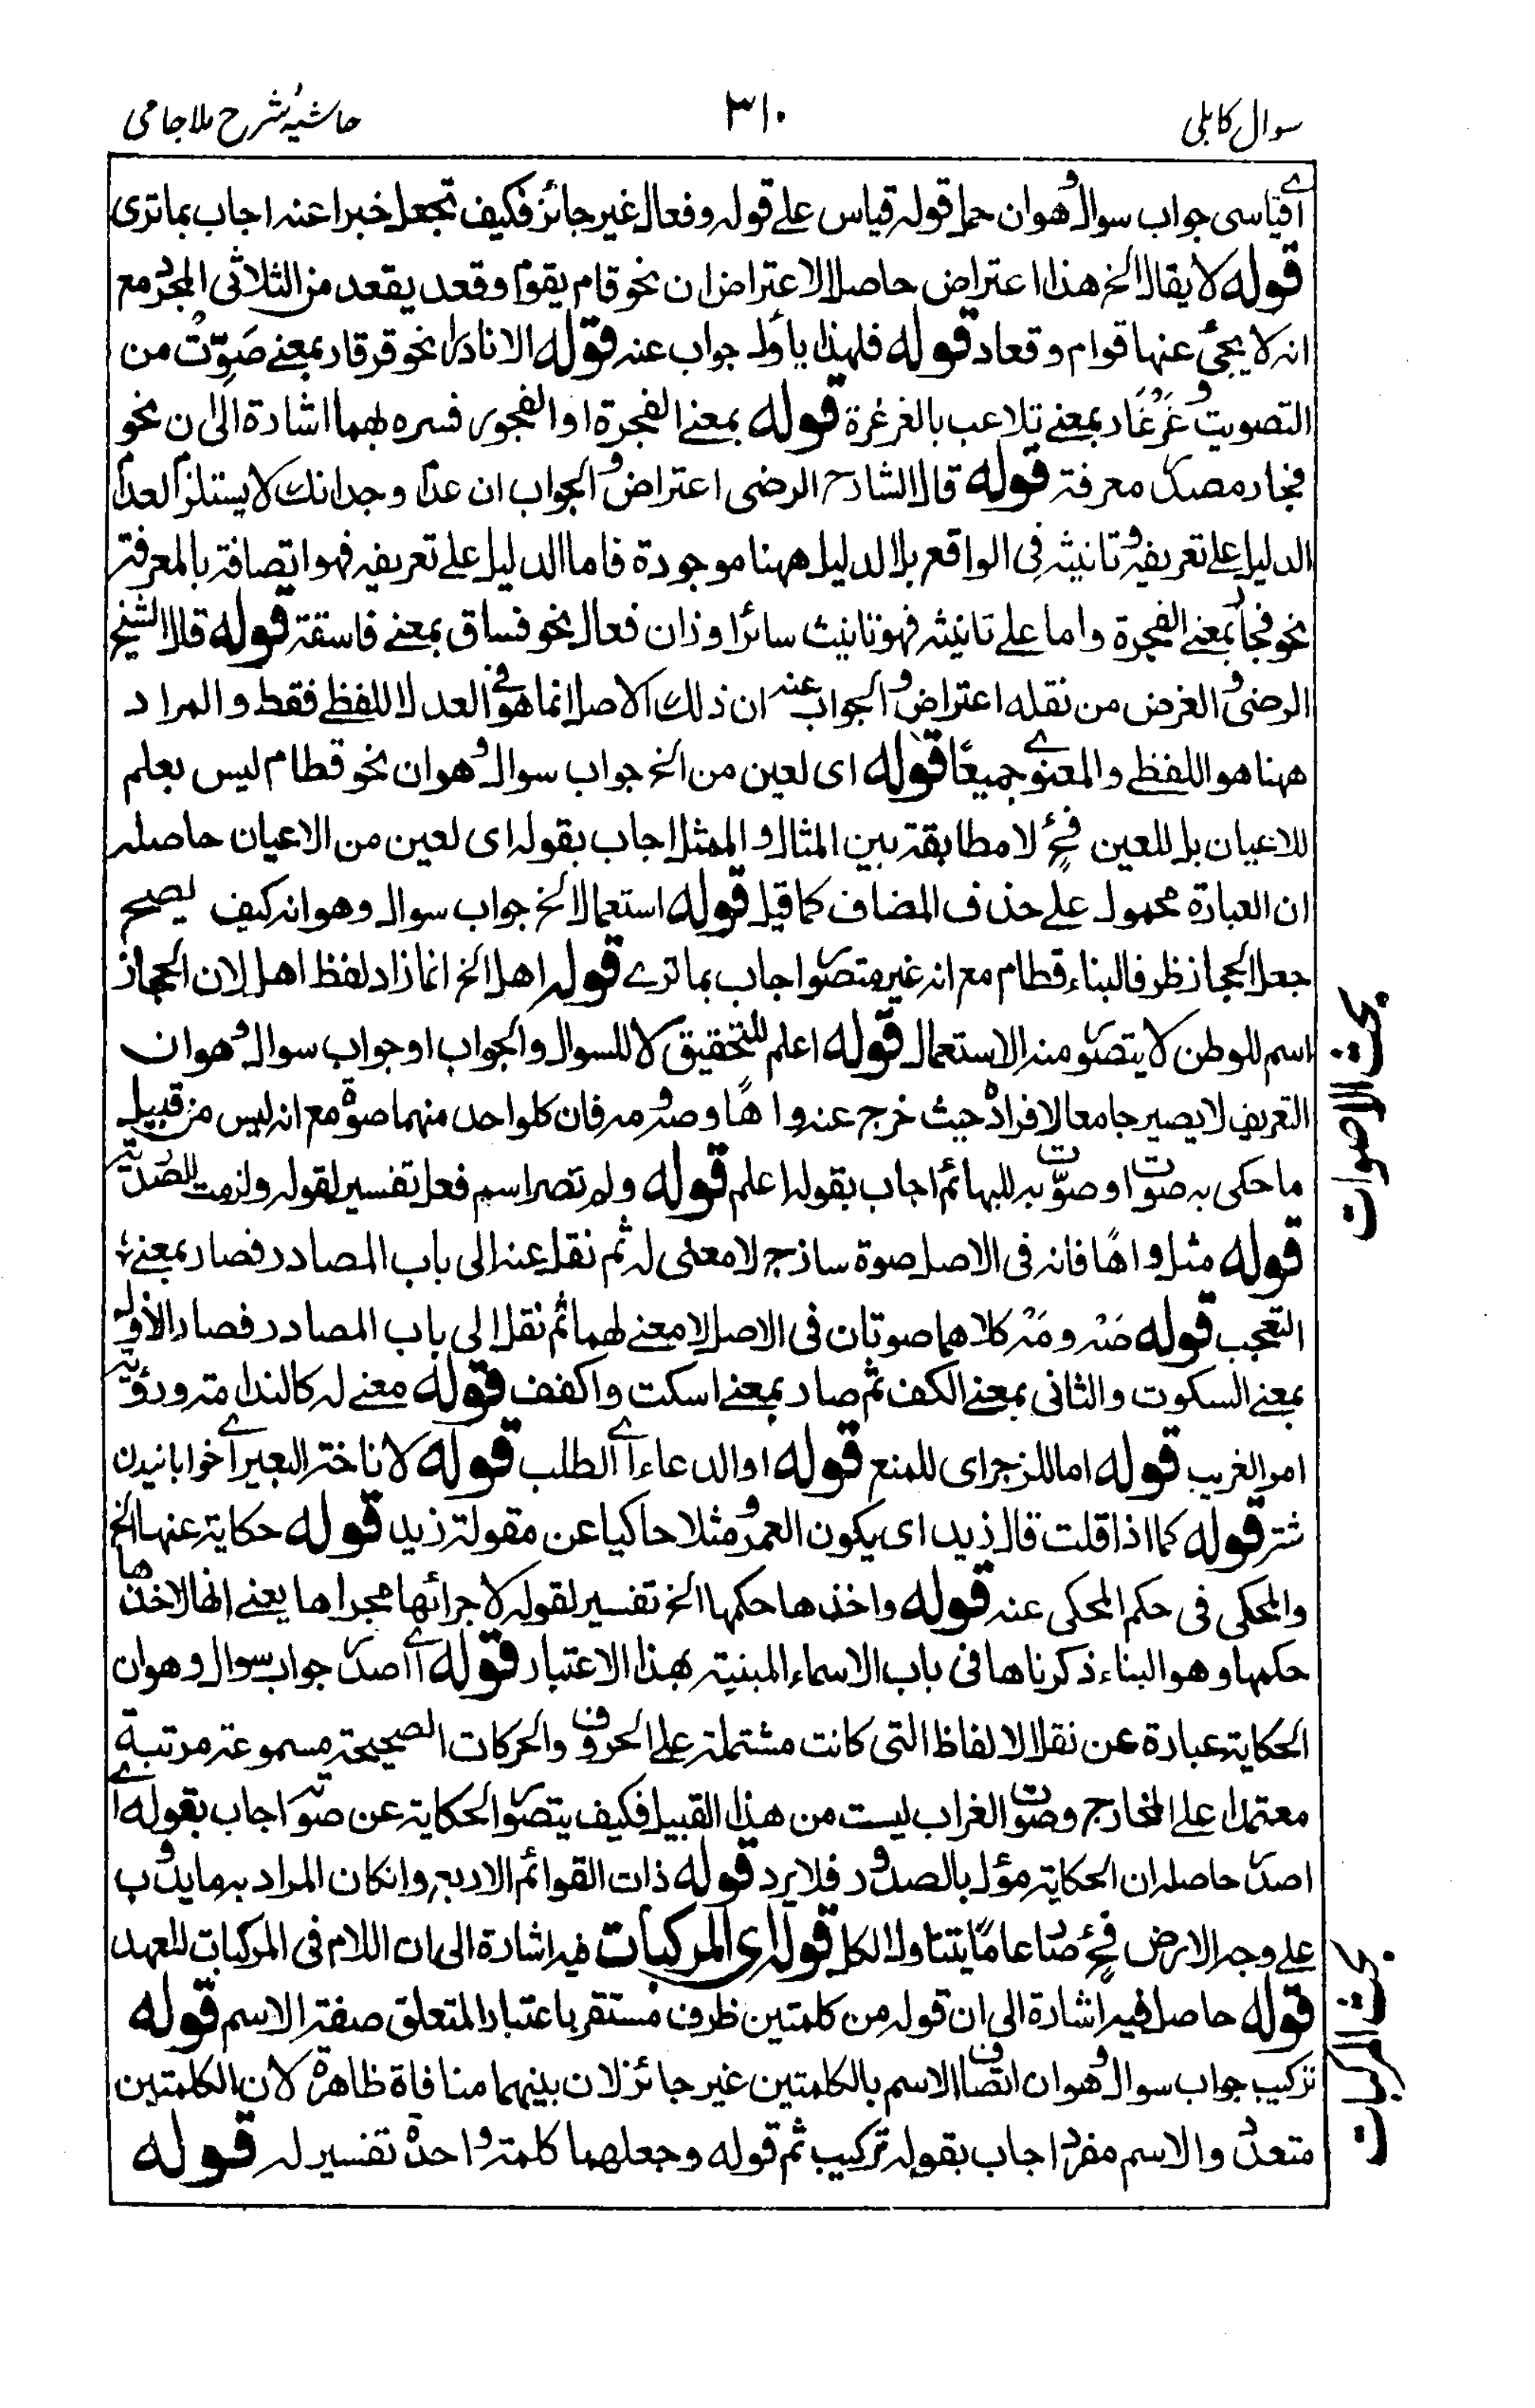 سوال کابلی
۳۱۰
حاشیۂ شرح ملا جامی
ای قیاسی جواب سوال وهوان حمل قوله قیاس علے قوله وفعال غیر جائز فکیف تجعل خبرا عنه اجاب بما تری
قوله لا یقال الخ هذا اعتراض حاصل الاعتراض ان نحو قام یقوم وقعد یقعد من الثلاثی المجرد مع
انه لا یجئ عنها قوام وقعاد قوله فلهذا یأول جواب عنه قوله الا نادرا نحو قرقار بمعنے صَوِّتْ من
التصویت وعَرْعَار بمعنے تلاعب بالغرغرة قوله بمعنے الفجرة او الفجور فسره بهما اشارة الی ان نحو
فجار مصدر معرفة قوله قال الشارح الرضی اعتراض والجواب ان عدم وجدانك لا یستلزم العدم
الدلیل علے تعریفه وتانیثه فی الواقع بل الدلیل ههنا موجودة فاما الدلیل علے تعریفه فهو اتصافة بالمعرفة
نحو فجار بمعنے الفجرة واما علے تانیثه فهو تانیث سائر اوزان فعال نحو فساق بمعنے فاسقة قوله قال الشیخ
الرضی والغرض من نقله اعتراض والجواب عنه ان ذلك الاصل انما هو فی العدل اللفظے فقط والمراد
ههنا هو اللفظے والمعنوے جمیعًا قوله ای لعین من الخ جواب سوال وهوان نحو قطام لیس بعلم
للاعیان بل للعین فحٍ لا مطابقة بین المثال والممثل اجاب بقوله ای لعین من الاعیان حاصله
ان العبارة محمول علے حذف المضاف کما قیل قوله استعمال الخ جواب سوال وهوانه کیف یصح
جعل الحجاز ظرفا لبناء قطام مع انه غیر متصور اجاب بما ترے قوله اهل الخ انما زاد لفظ اهل لان الحجاز
اسم للوطن لا یتصور منه الاستعمال قوله اعلم للتحقیق لا للسوال والجواب او جواب سوال وهوان
التعریف لا یصیر جامعا لافراده حیث خرج عنه واهًا وصه ومه فان کلواحد منهما صوة مع انه لیس من قبیل
ما حکی به صوت او صوّت به للبهائم اجاب بقوله اعلم قوله ولم تصر اسم فعل تفسیر لقوله ولزمت المصدریة
قوله مثل واهًا فانه فی الاصل صوة ساذج لا معنی له ثم نقل عنه الی باب المصادر فصار بمعنے
التعجب قوله صَهْ ومَهْ کلاهما صوتان فی الاصل لا معنے لهما ثم نقلا الی باب المصادر فصار الاول
بمعنے السکوت والثانی بمعنے الکف ثم صار بمعنے اسکت واکفف قوله معنے له کالندامة ورؤیة
امر الغریب قوله اما للزجر ای للمنع قوله او الدعاء اے الطلب قوله لاناخة البعیر اے خوابانیدن
شتر قوله کما اذا قلت قال زید ای یکون العمرو مثلا حاکیا عن مقولة زید قوله حکایة عنها الخ
والمحکی فی حکم المحکی عنه قوله واخذها حکمها الخ تفسیر لقوله لاجرائها مجراها یعنے انها لاخذها
حکمها وهو البناء ذکرناها فی باب الاسماء المبنیة بهذا الاعتبار قوله اے اصدر جواب سوال وهوان
الحکایة عبارة عن نقل الالفاظ التی کانت مشتملة علی الحروف والحرکات الصحیحة مسموعة مرتبة
معتمدا علے المخارج وصوت الغراب لیست من هذا القبیل فکیف یتصور الحکایة عن صوته اجاب بقوله اے
اصدر حاصله ان الحکایة مؤل بالصدور فلا یرد قوله ذات القوائم الاربع وانکان المراد به ما یدب
علے وجه الارض فحٍ صار عامًا یتناول الکل قوله ای المرکبات فیه اشارة الی ان اللام فی المرکبات للعهد
قوله حاصل فیه اشارة الی ان قوله من کلمتین ظرف مستقر باعتبار المتعلق صفة الاسم قوله
ترکیب جواب سوال وهوان اتصاف الاسم بالکلمتین غیر جائز لان بینهما منافاة ظاهرة لان الکلمتین
متعدد والاسم مفرد اجاب بقوله ترکیب ثم قوله وجعلهما کلمة واحدة تفسیر له قوله
بحث الاصوات
بحث المرکبات